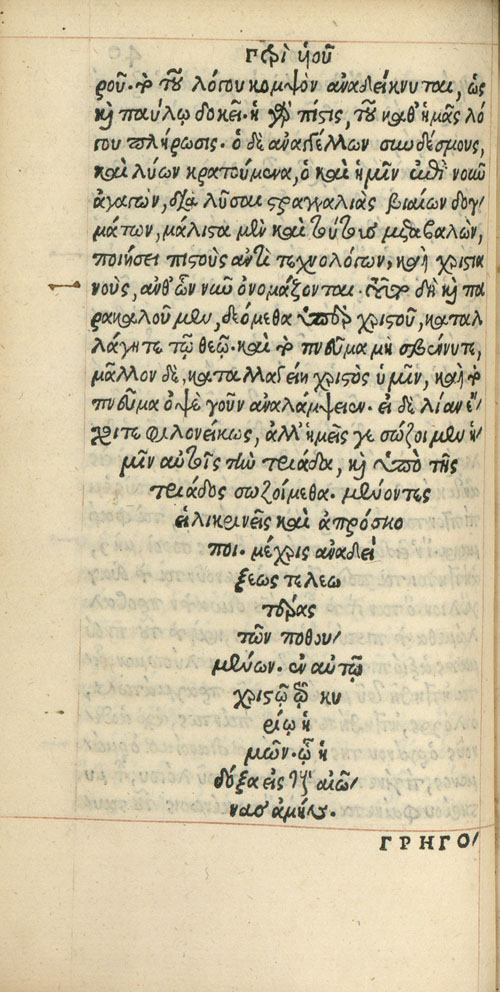 περὶ υἱοῦ
ροῦ. τὸ τοῦ λόγου κομψὸν ἀναδείκνυται, ὡς
καὶ παύλῳ δοκεῖ. ἡ γὰρ πίστις, τοῦ καθ' ἡμᾶς λό
γου πλήρωσις. ὁ δὲ ἀναγέλλων συνδέσμους,
καὶ λύων κρατούμενα, ὁ καὶ ἡμῖν ἐπὶ νοῦν
ἀγαγὼν, διαλῦσαι στραγγαλιὰς βιαίων δογ/
μάτων, μάλιστα μὲν καὶ τούτους μεταβαλὼν,
ποιήσειε πιστοὺς ἀντὶ τεχνολόγων, καὶ χριστια
νοὺς, ἀνθ' ὧν νῦν ὀνομάζονται. τοῦτο δὴ καὶ πα
ρακαλοῦμεν, δεόμεθα ὑπὲρ χριστοῦ, καταλ
λάγητε τῷ θεῷ. καὶ τὸ πνεῦμα μὴ σβέννυτε,
μᾶλλον δὲ, καταλλαγείη χριστὸς ὑμῖν, καὶ τὸ
πνεῦμα ὀψὲ γοῦν ἀναλάμψειεν. εἰ δὲ λίαν ἔ/
χοιτε φιλονείκως, ἀλλ' ἡμεῖς γε σώζοιμεν ἡ/
μῖν αὐτοῖς τὴν τριάδα, καὶ ὑπὸ τῆς
τριάδος σωζοίμεθα. μένοντες
εἰλικρινεῖς καὶ ἀπρόσκο
ποι. μέχρις ἀναδεί
ξεως τελεω
τέρας
τῶν ποθου/
μένων. ἐν αὐτῷ
χριστῷ τῷ κυ
ρίῳ ἡ
μῶν. ᾧ ἡ
δόξα εἰς τοὺς αἰῶ/
νας ἀμήν.
ΓΡΗΓΟ/